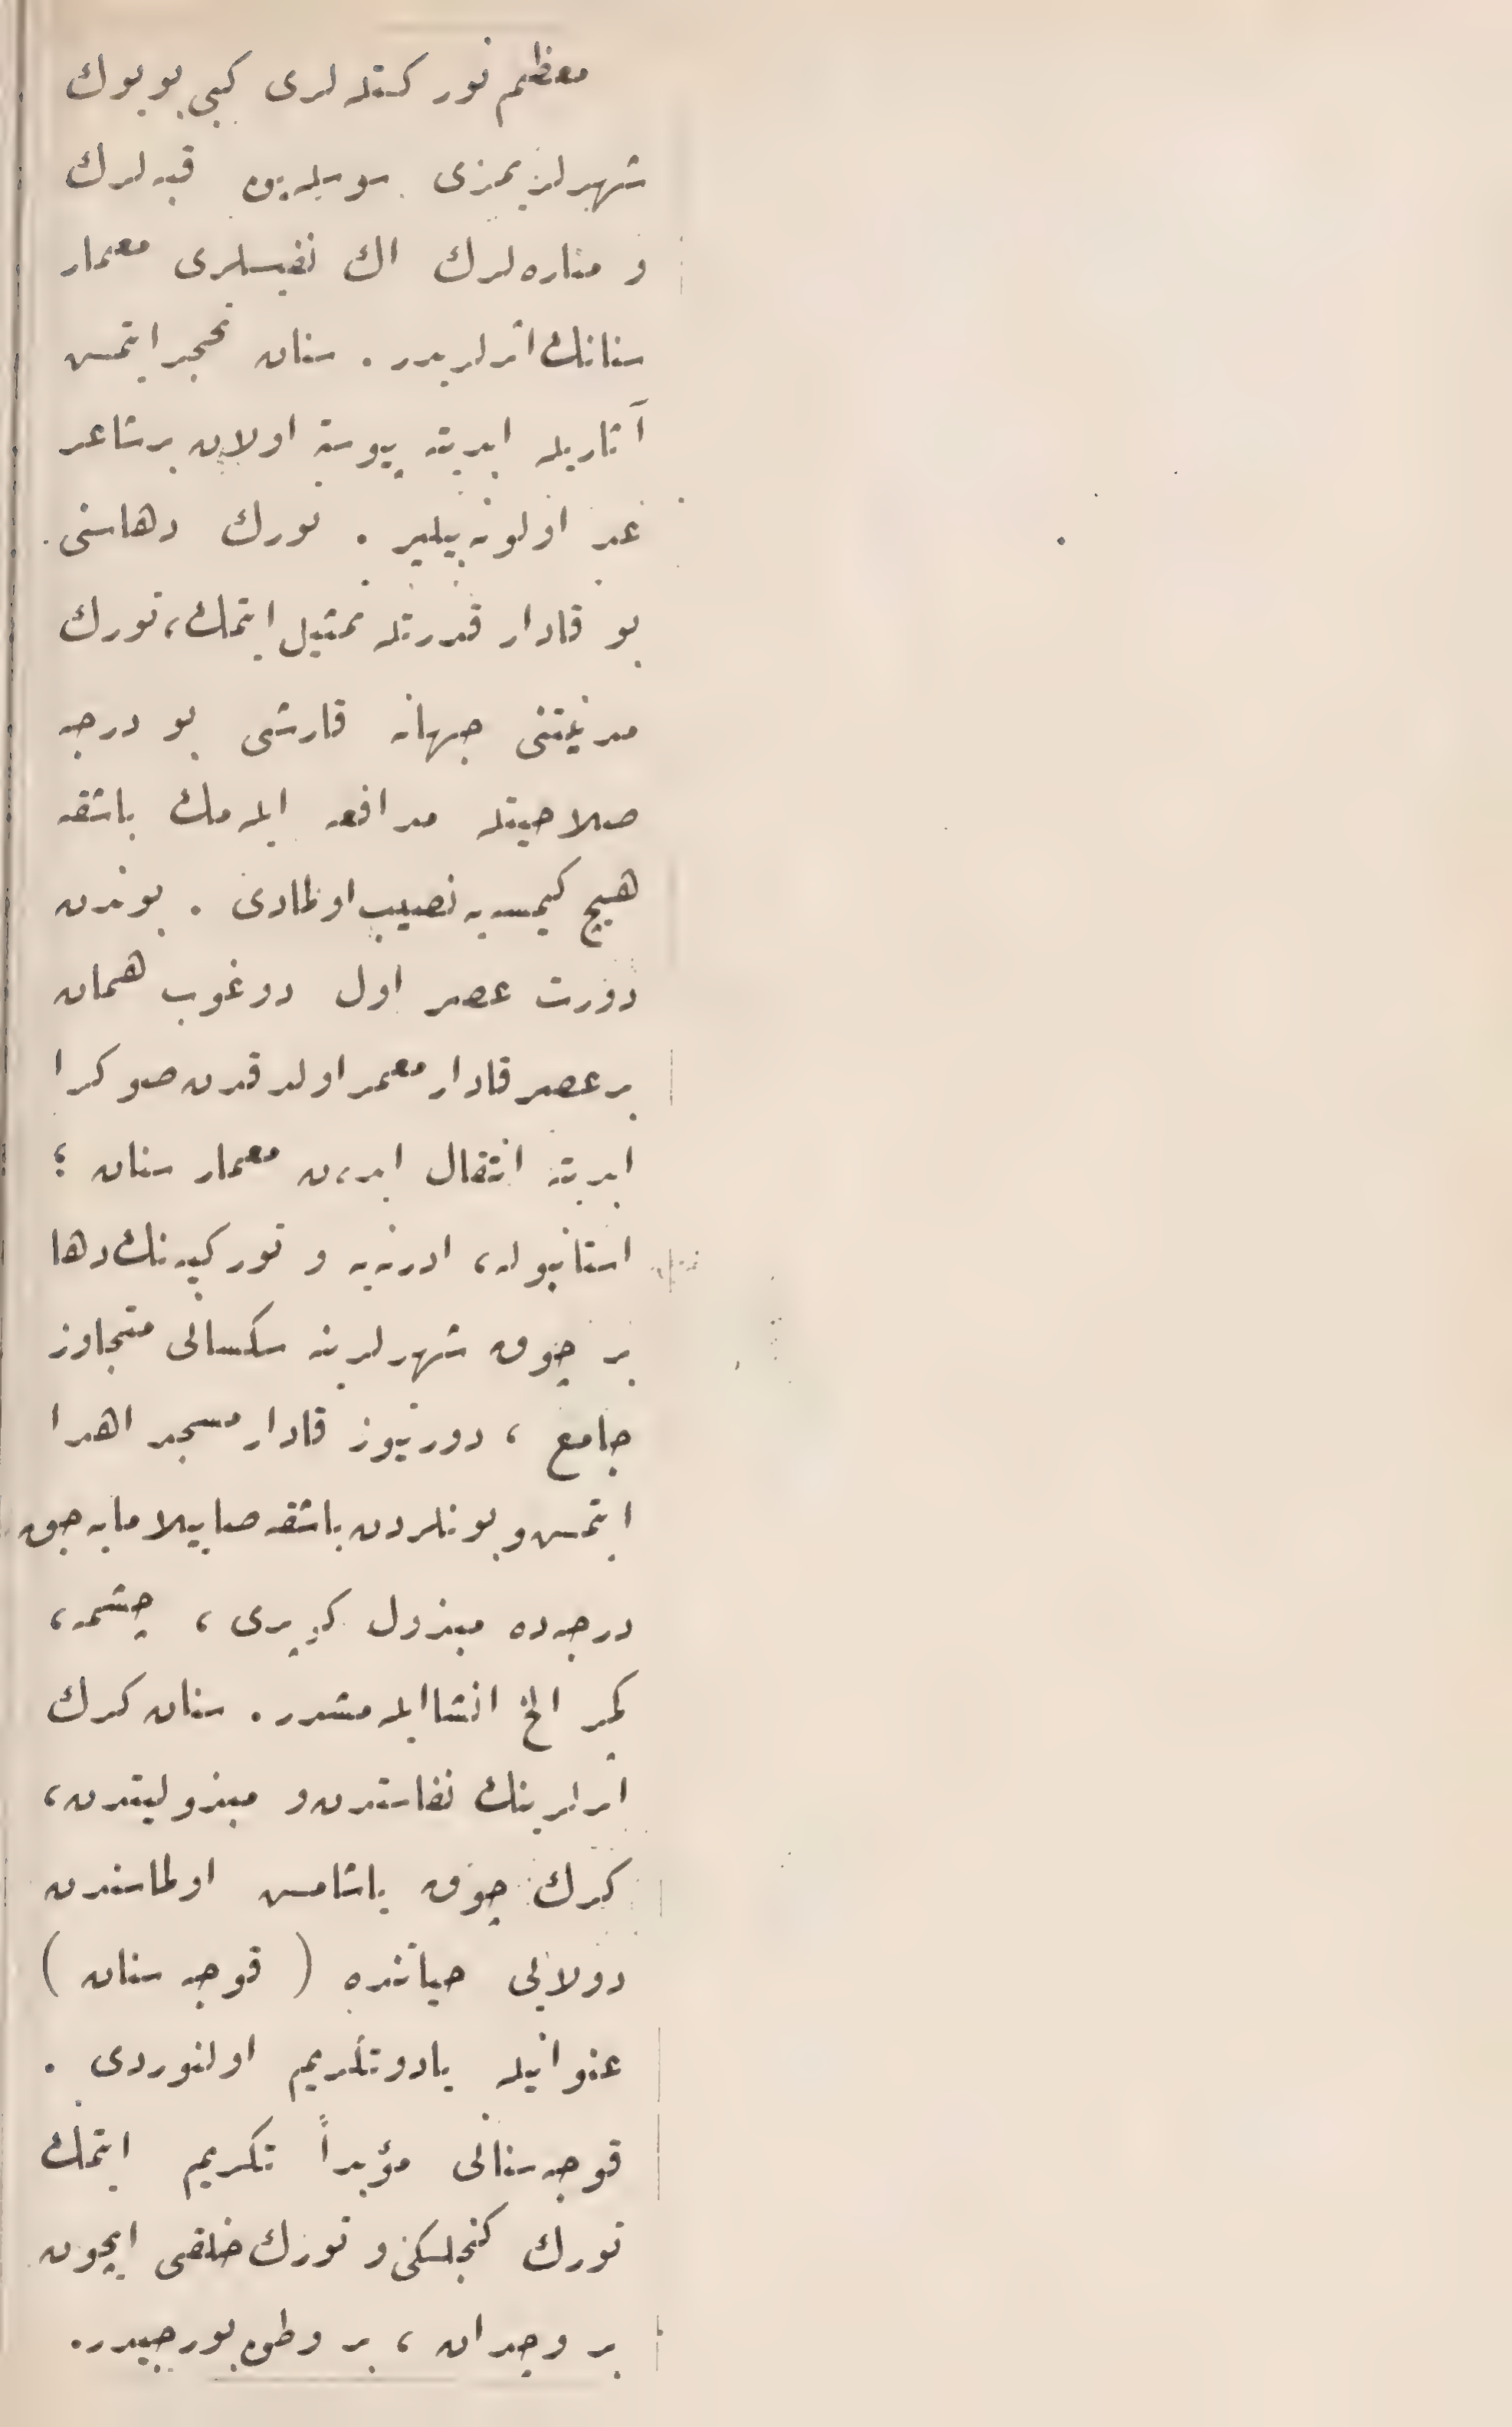 معظم نور كتله لرى كبى بويوك
شهرلريمزى سوسله ين قبه لرك
و مناره لرك اك نفيسلرى معمار
سنانك اثرلريدر . سنان تحجر ايتمش
آثاريله ابديته پيوسته اولان برشاعر
عد اولونه بيلير . تورك دهاسنى
بو قادار قدرتله تمثيل ايتمك، تورك
مدنيتنى جهانه قارشى بو درجه
صلاحيتله مدافعه ايله مك باشقه
هيچ كيمسه يه نصيب اولمادى . بوندن
دورت عصر اول دوغوب همان
بر عصر قادار معمر اولدقدن صوكرا
ابديته انتقال ايدن معمار سنان ؛
استانبوله، ادرنه يه و توركيه نك دها
بر چوق شهرلرينه سكسانى متجاوز
جامع ، دورتيوز قادار مسجد اهدا
ايتمش و بونلردن باشقه صاييلامايه جق
درجه ده مبذول كوپرى ، چشمه،
كمر الخ انشا ايله مشدر . سنان كرك
اثرلرينك نفاستندن و مبذوليتندن،
كرك چوق ياشامش اولماسندن
دولايى حياتنده ( قوجه سنان )
عنوانيله ياد و تكريم اولنوردى .
قوجه سنانى مؤبداً تكريم ايتمك
تورك كنجلكى و تورك خلقى ايچون
بر وجدان ، بر وطن بورجيدر.